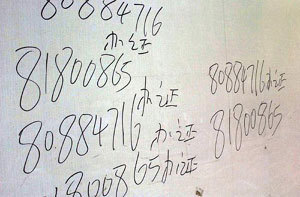 80884716
办证
81800865
办证
80884716
办证
81800865办证
80884716办证
81800865